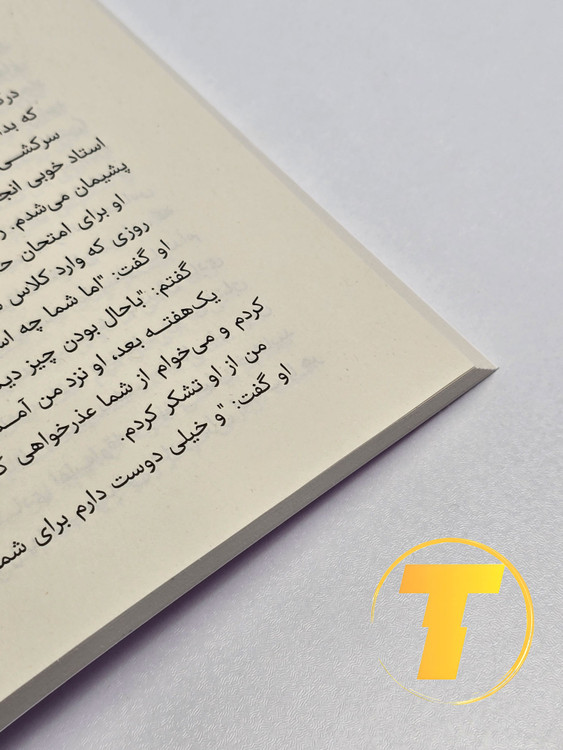 که
سرکشی
استاد خوبی
پشیمان می‌شدم.
او برای امتحان
روزی که وارد کلاس
او گفت: "اما شما چه
گفتم: "باحال بودن چیز
یک‌هفتــه بعد، او نزد من
کردم و می‌خوام از شما عذرخواهی
من از او تشکر کردم.
او گفت: "و خیلی دوست دارم برای
T